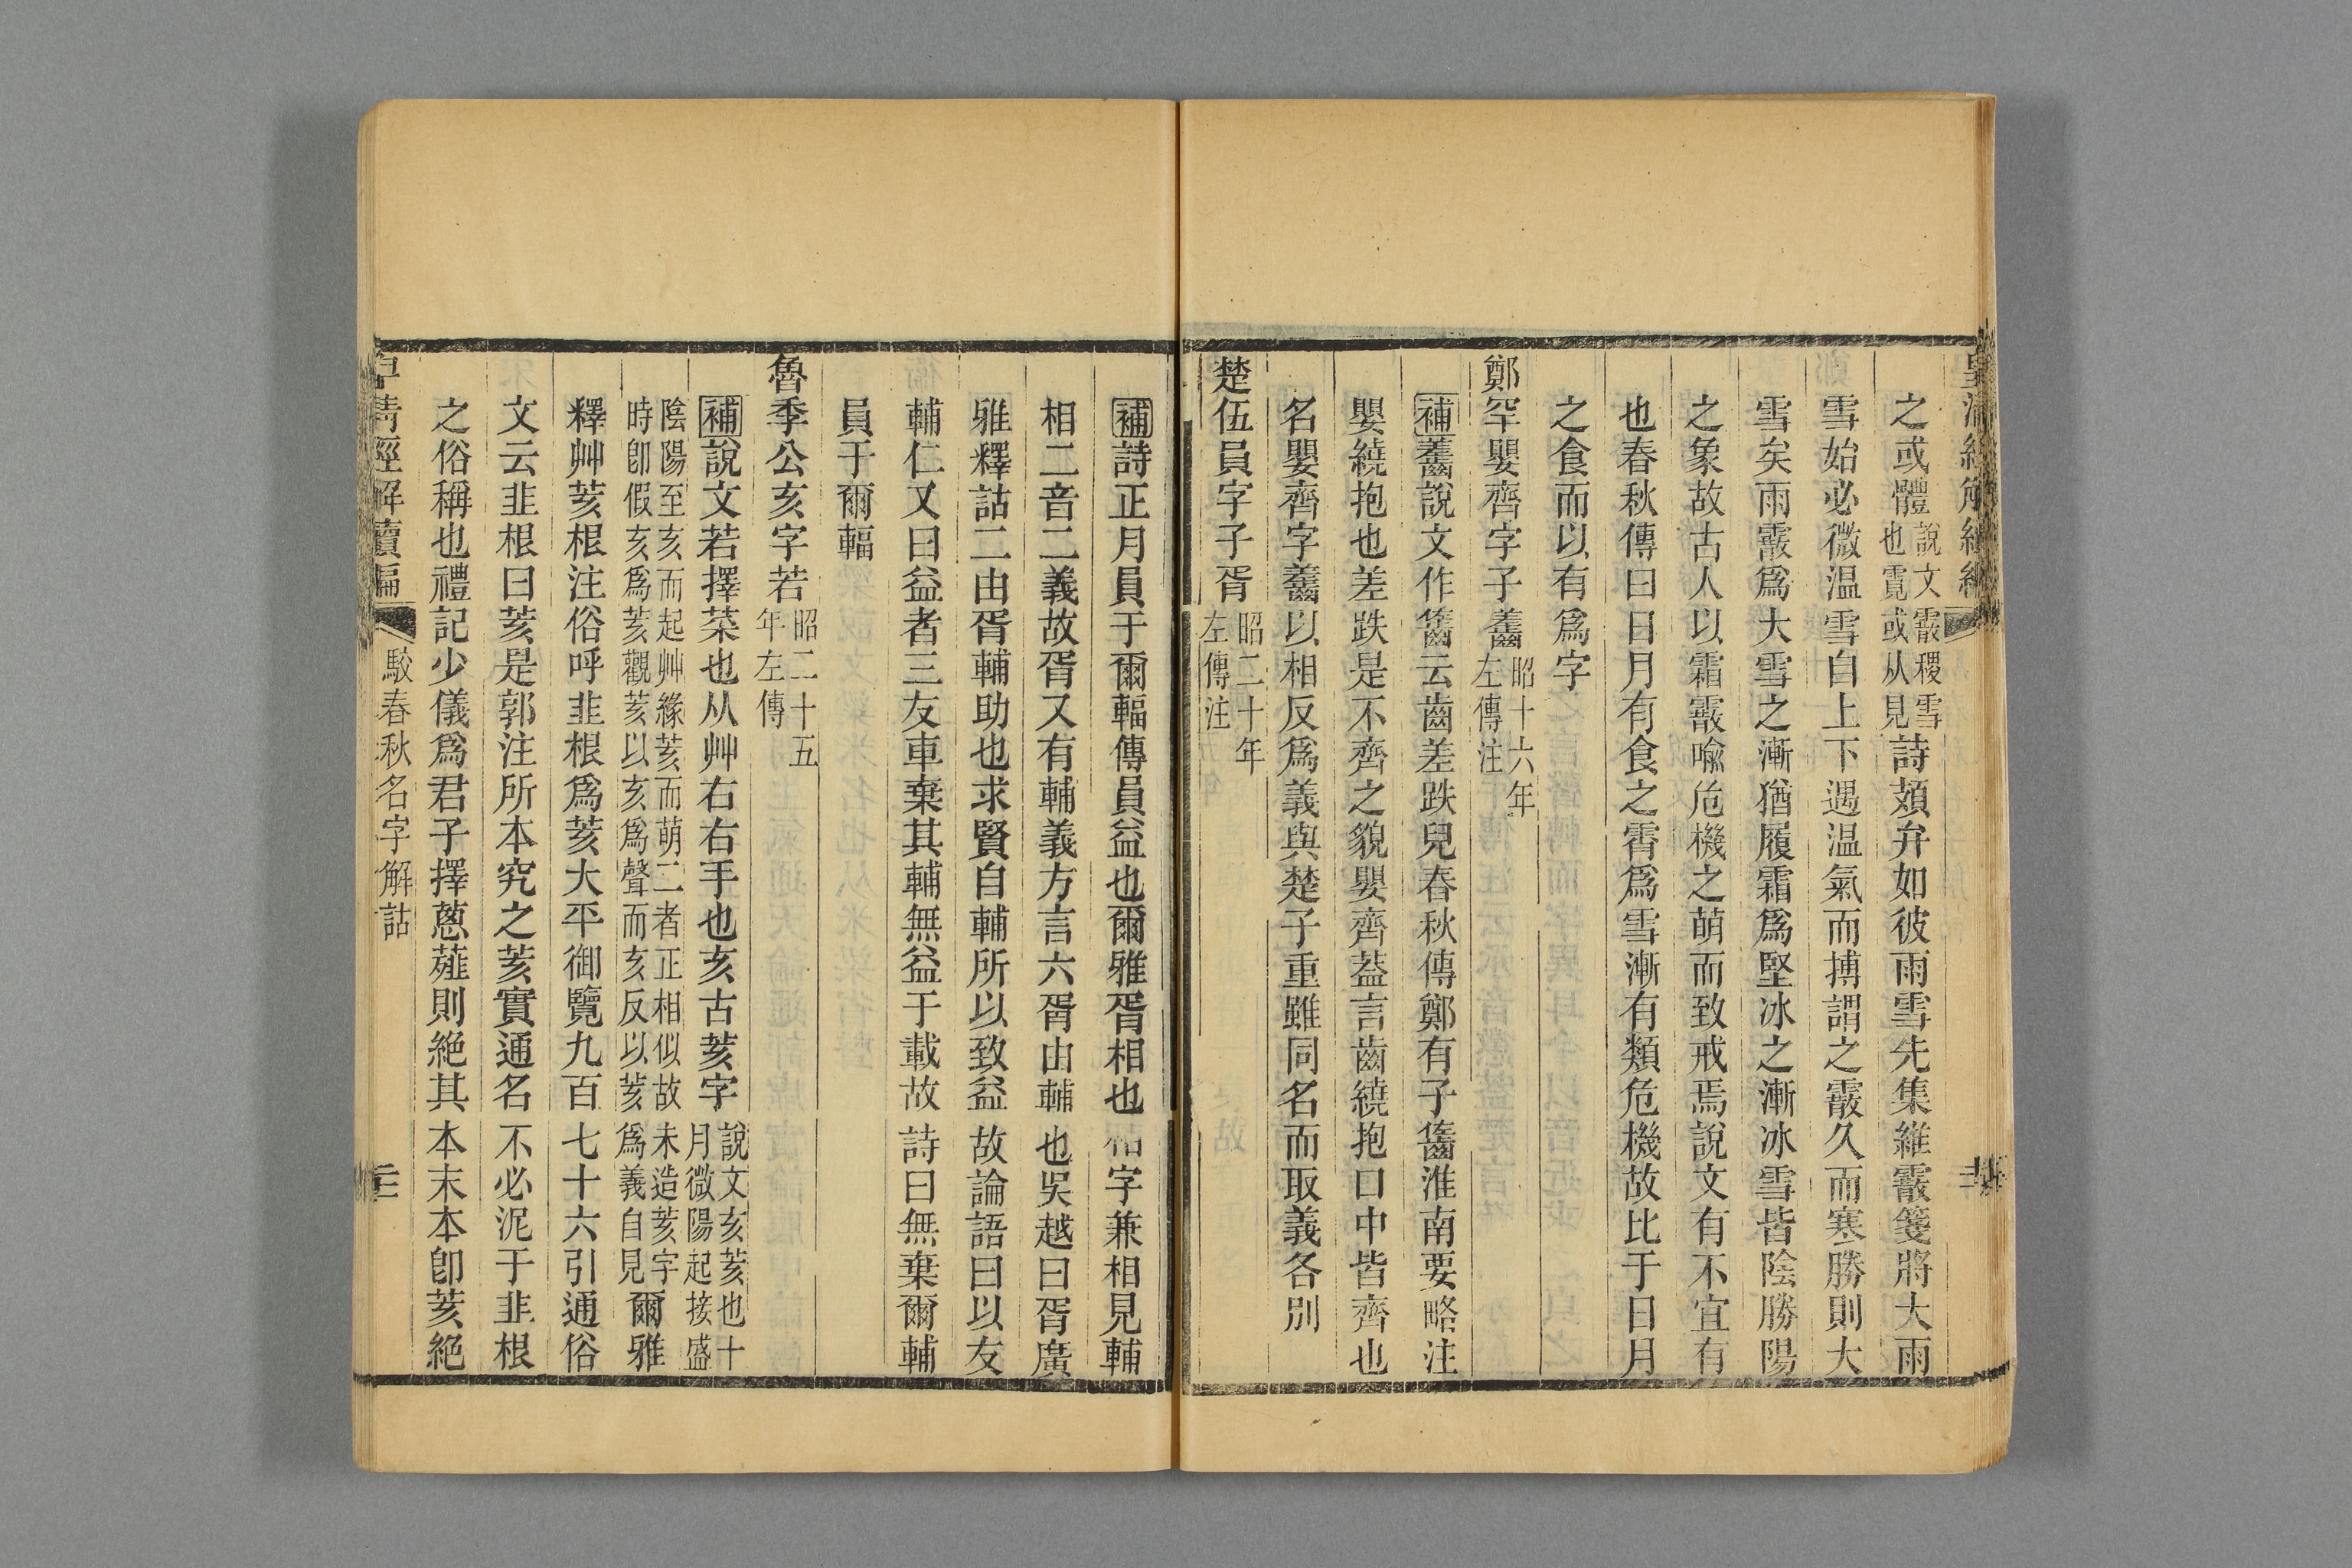 皇清經解續編
之或體說文霰稷雪也霓或从見詩頍弁如彼雨雪先集維霰箋將大雨
雪始必微温雪自上下遇温氣而摶謂之霰久而寒勝則大
雪矣雨霰爲大雪之漸猶履霜爲堅冰之漸冰雪皆陰勝陽
之象故古人以霜霰喻危機之萌而致戒焉說文有不宜有
也春秋傳曰日月有食之霄爲雪漸有類危機故比于日月
之食而以有爲字
鄭罕嬰齊字子齹昭十六年左傳注
補齹說文作䶥云齒差跌皃春秋傳鄭有子䶥淮南要略注
嬰繞抱也差跌是不齊之貌嬰齊葢言齒繞抱口中皆齊也
名嬰齊字齹以相反爲義與楚子重雖同名而取義各別
楚伍員字子胥昭二十年左傳注
補詩正月員于爾輻傳員益也爾雅胥相也相字兼相見輔
相二音二義故胥又有輔義方言六胥由輔也吳越曰胥廣
雅釋詁二由胥輔助也求賢自輔所以致益故論語曰以友
輔仁又曰益者三友車棄其輔無益于載故詩曰無棄爾輔
員于爾輻
魯季公亥字若昭二十五年左傳
補說文若擇菜也从艸右右手也亥古荄字說文亥荄也十月微陽起接盛
陰陽至亥而起艸緣荄而萌二者正相似故未造荄字時卽假亥爲荄觀荄以亥爲聲而亥反以荄爲義自見爾雅
釋艸荄根注俗呼韭根爲荄大平御覽九百七十六引通俗
文云韭根曰荄是郭注所本究之荄實通名不必泥于韭根
之俗稱也禮記少儀爲君子擇葱薤則絶其本末本卽荄絶
皇清經解續編
駁春秋名字解詁